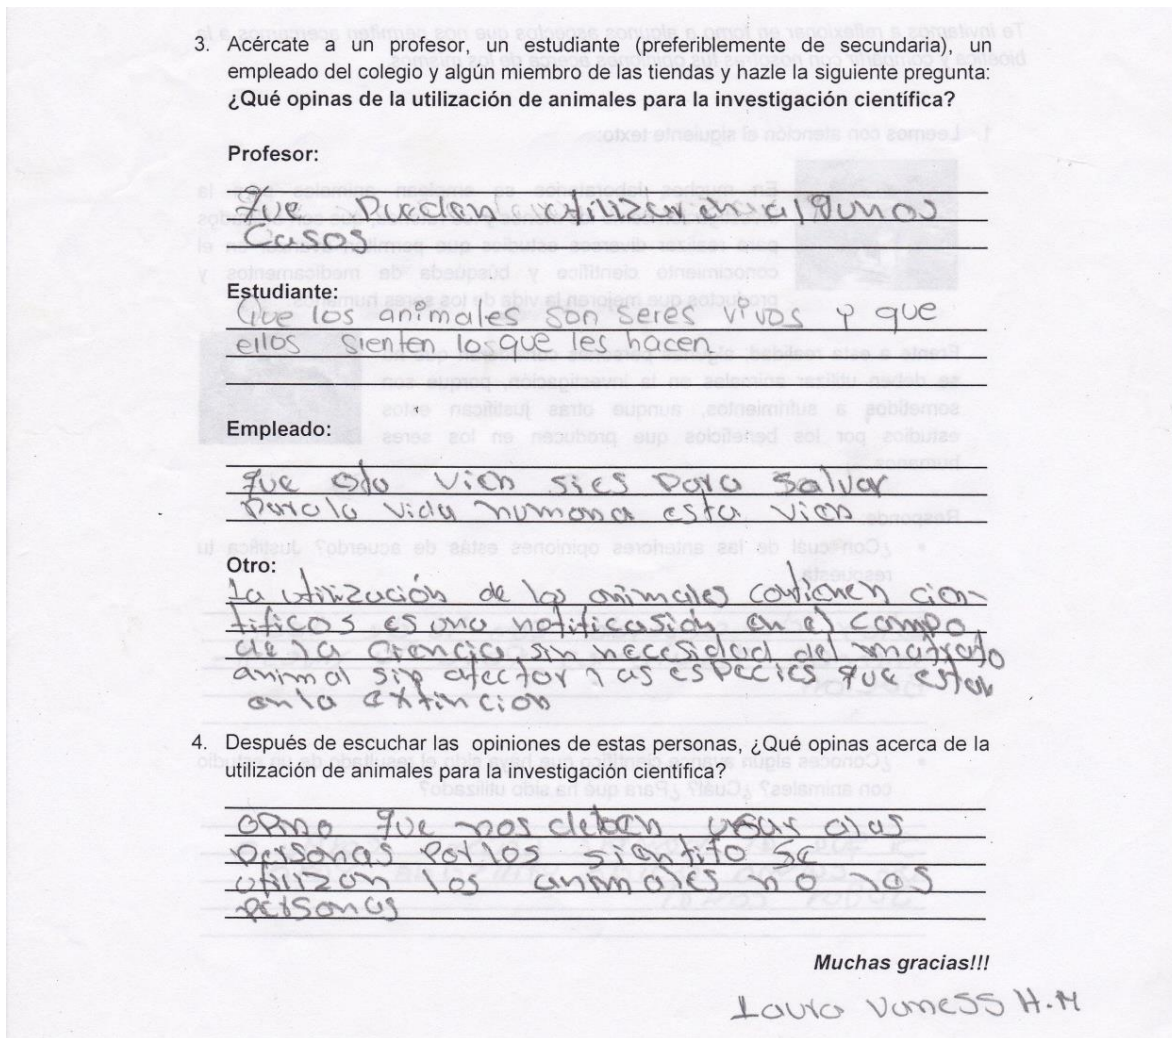 3. Acércate a un profesor, un estudiante (preferiblemente de secundaria), un
empleado del colegio y algún miembro de las tiendas y hazle la siguiente pregunta:
¿Qué opinas de la utilización de animales para la investigación científica?
Profesor:
Que Puedan utilizar en algunos
Casos
Estudiante:
Que los animales son seres vivos y que
ellos sienten los que les hacen
Empleado:
que esta vien si es para salvar
Para la vida humana esta vien
Otro:
La utilización de los animales cien-
tificos es una notificasión en el campo
de la ciencia sin necesidad del matrato
animal sin afectar las especies que estan
en la extincion
4. Después de escuchar las opiniones de estas personas, ¿Qué opinas acerca de la
utilización de animales para la investigación científica?
opino que nos deben usar alas
personas se
utilizan los animales no las
personas
Muchas gracias!!!
Laura Vaness H.M